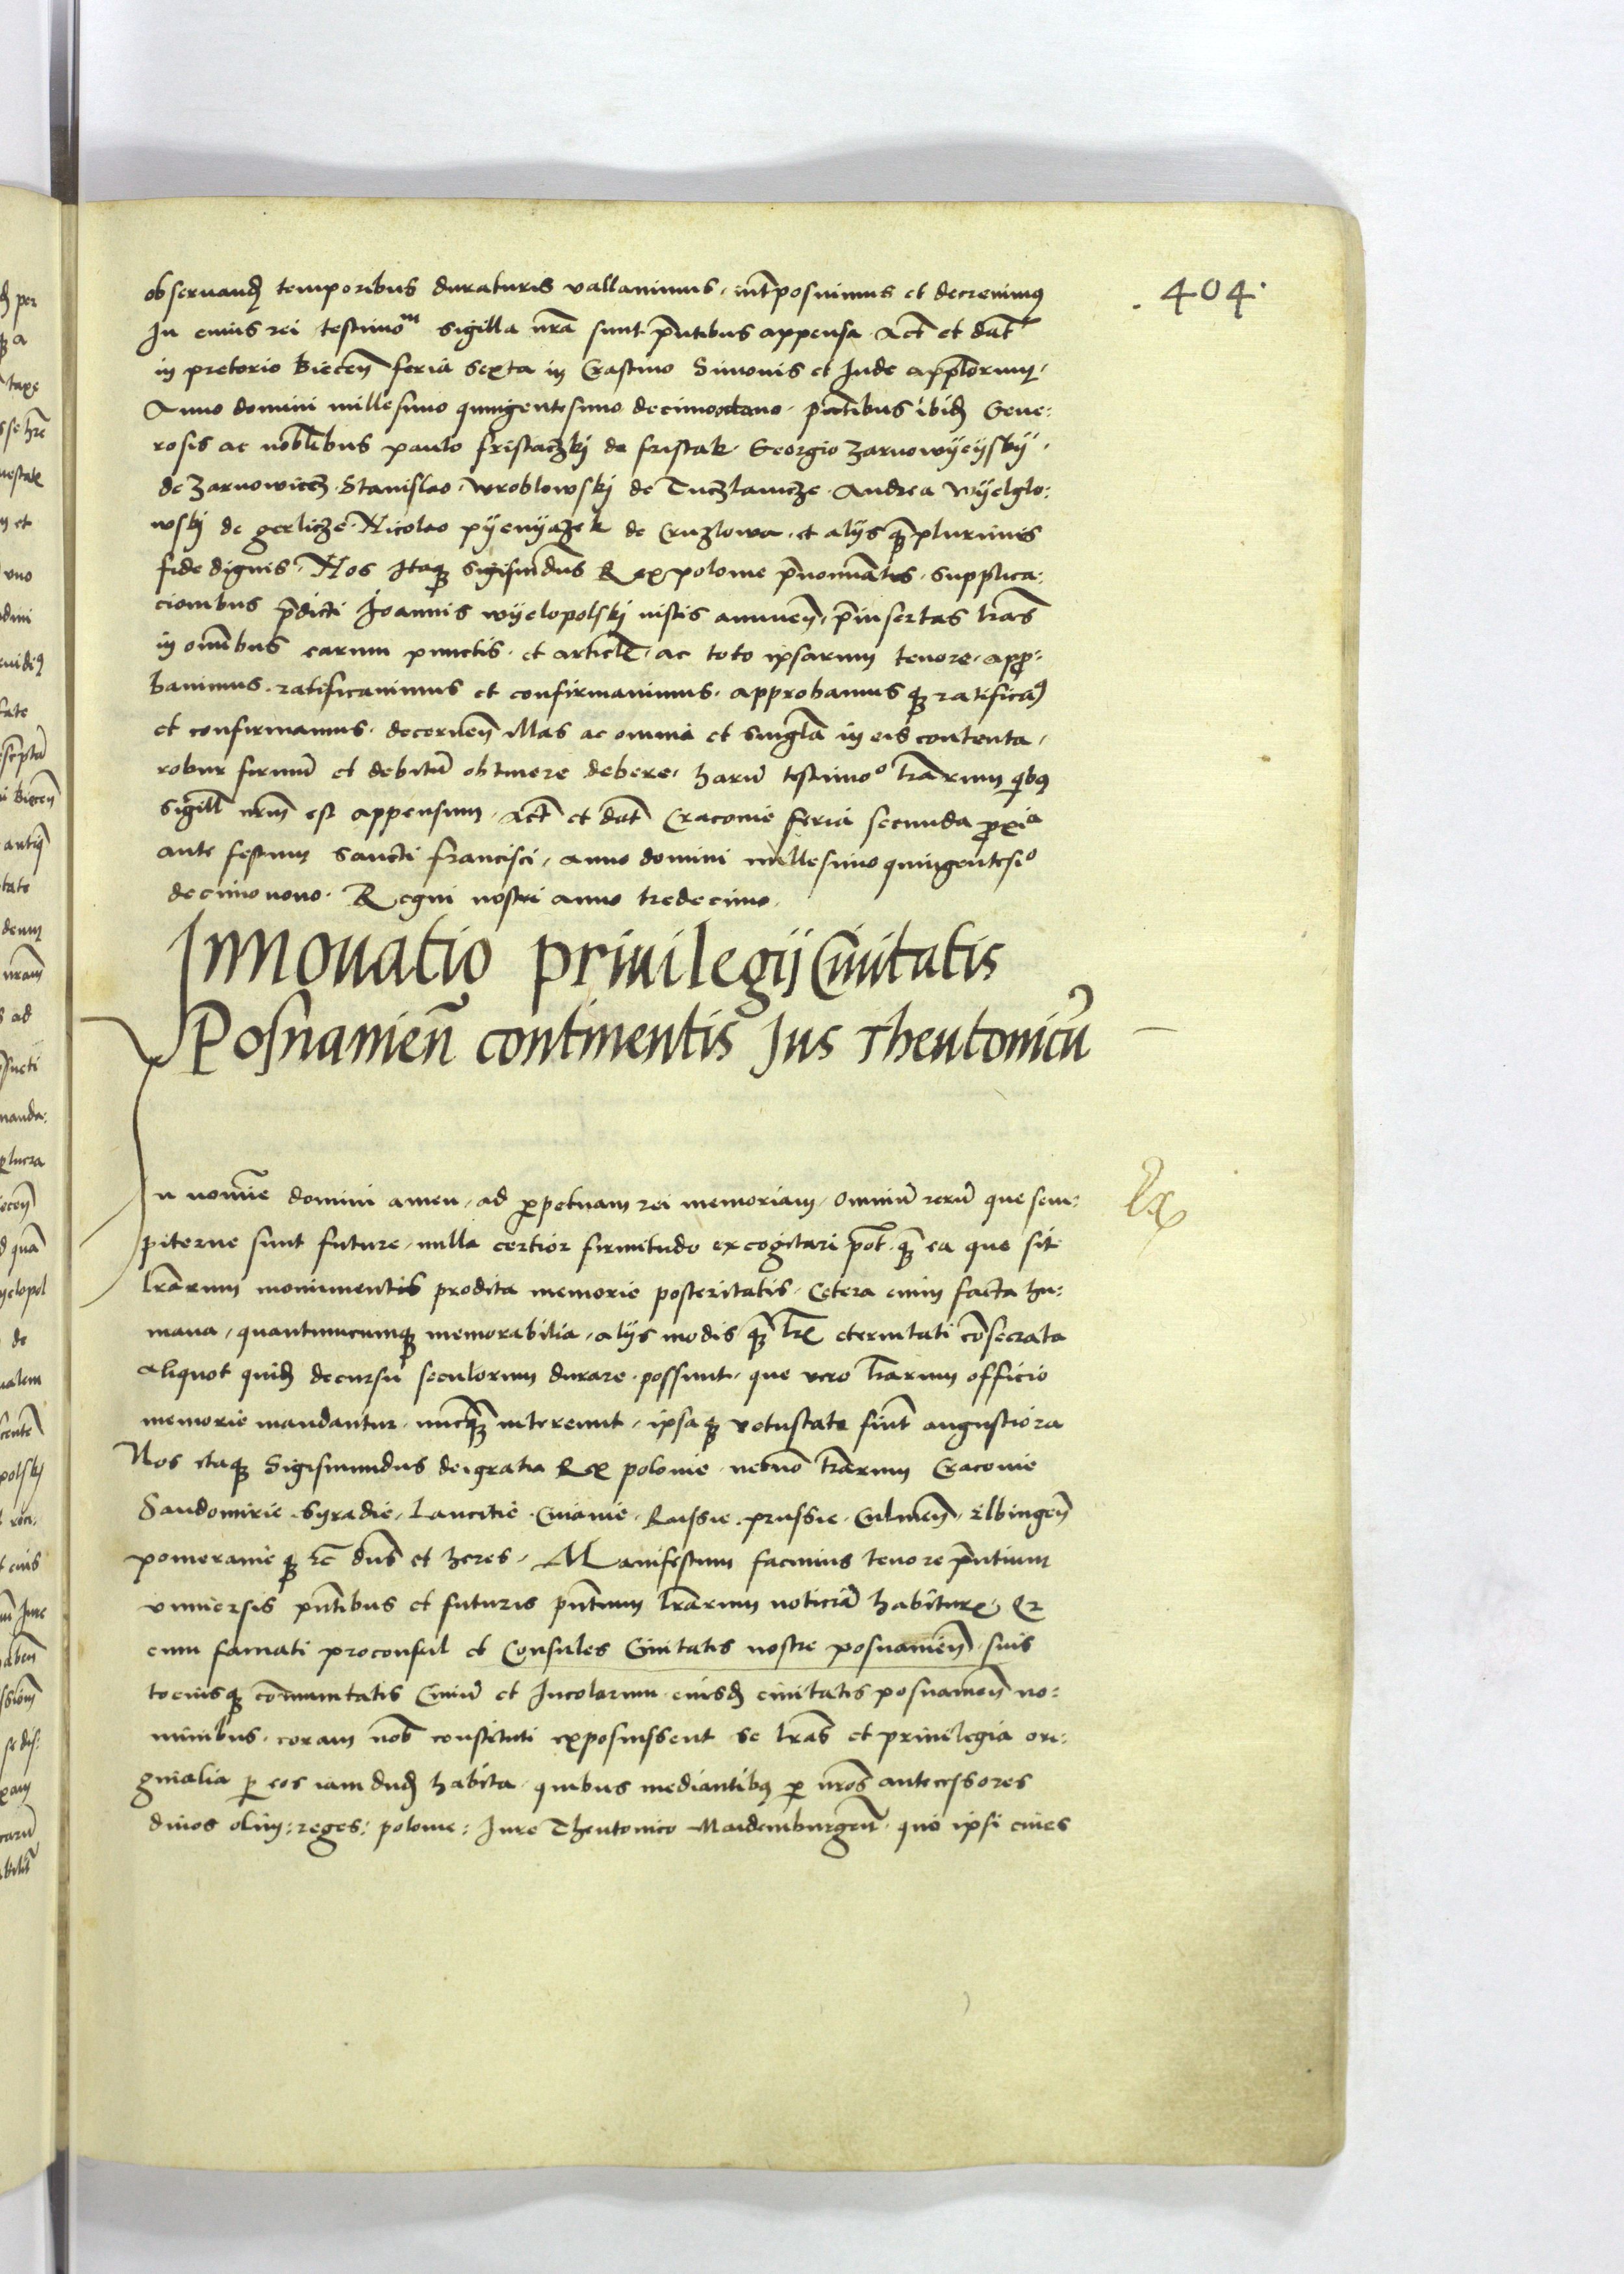 404
obseruand temporibus duraturis vallauimus, int̄posuimus et decreuim9
In cuius rei testimom sigilla nr̄a sunt p̄ntibus appensa. Act̄ et dat̄
in pretorio Biecen̄ feria sexta in Crastino Simonis et Jude app̄lorum,
Anno domini millesimo quingentesimo decimooctauo. p̄ntibus ibid Gene:
rosis ac nob̄libus paulo fristaczkj de fristak. Georgio Zarnowyeyskÿ.
de Zarnowicez. Stanislao. wroblowskj de Tuczlamcze. Andrea wÿelglo:
wskj de gerlicze. Nicolao pÿenÿazek de Cruzlowa. et alijs q̄ꝫ plurimis
fide dignis. Nos Itaqꝫ Sigismūdus Rex polonie p̄nominatus. supplica:
cionibus p̄dicti Joannis wÿelopolskj iustis annuen̄, p̄insertas lr̄as
in om̄ibus earum punctis. et articl̄. ac toto ipsarum tenore. appro:
bauimus. ratificauimus et confirmauimus. approbamus qꝫ ratificam9
et confirmamus. decernen̄ illas ac omnia et singl̄a in eis contenta,
robur firmū et debitū obtinere debere. harū testimoo lr̄arum qib9
Sigill̄ nr̄m est appensum. Act̄ et dat̄ Cracouie feria secunda ꝓxia
ante festum sancti francisci, anno domini millesimo quingentesio
decimonono. Regni nostri anno tredecimo.
Innouatio priuilegij Ciuitatis
Posnanien̄ continentis Jus Theutonicū
In nomīe domini amen, ad ꝑpetuam rei memoriam, Omniū rerū que sem:
piterne sunt future, nulla certior firmitudo excogitari pōt. q̄ꝫ ea que sit
lr̄arum monimentis prodita memorie posteritatis. Cetera enim facta hu:
mana, quantumcumqꝫ memorabilia, alijs modis q̄ꝫ lr̄is eternitati cōsecrata
aliquot quid decursu seculorum durare possunt, que vero lr̄arum officio
memorie mandantur. nuncq̄ꝫ intereunt, ipsaqꝫ vetustate fiunt angustiora
Nos itaqꝫ Sigismundus dei gratia Rex polonie. necnō terrarum Cracouie
Sandomirie. Syradie, Lancitie. Cuiauie. Russie. prussie. Culmen̄. Elbingen̄
pomeranie qꝫ rc̄ dn̄s et heres. Manifestum facimus tenore p̄ntium
vniuersis p̄ntibus et futuris p̄ntium lr̄arum noticiā habituris. Q
cum famati proconsul et Consules Ciuitatis nostre posnanien̄. suis
tociusqꝫ cōmunitatis Ciuiū et Incolarum eiusd ciuitatis posnanien̄ no:
minibus. coram nob̄ constituti exposuissent se lr̄as et priuilegia ori:
ginalia ꝑ eos iam dud habita. quibus mediantib9 ꝑ nr̄os antecessores
diuos olim: reges: polonie: Jure Theutonico Maidemburgen̄. quo ipsi ciues